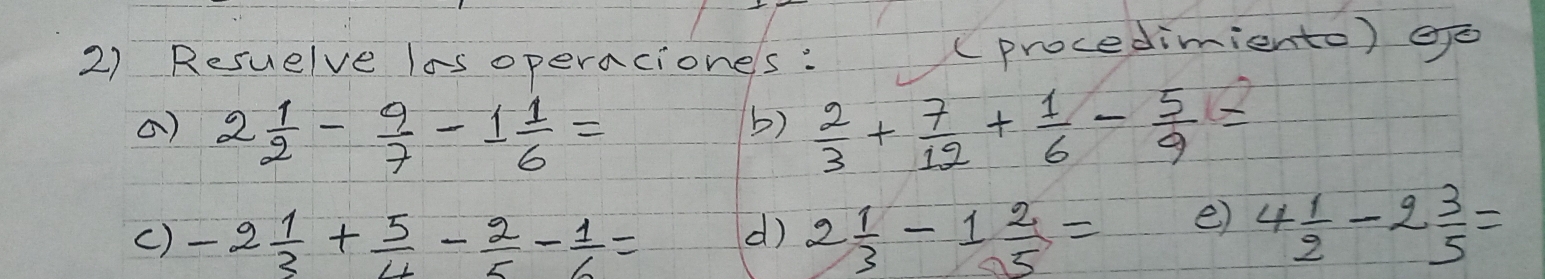 2) Resuelve las operaciones: (procedimiento) ojo
a) 2 1/2 - 9/7 - 1 1/6 = b) 2/3 + 7/12 + 1/6 - 5/9 =
c) - 2 1/3 + 5/4 - 2/5 - 1/6 = d) 2 1/3 - 1 2/5 = e) 4 1/2 - 2 3/5 =